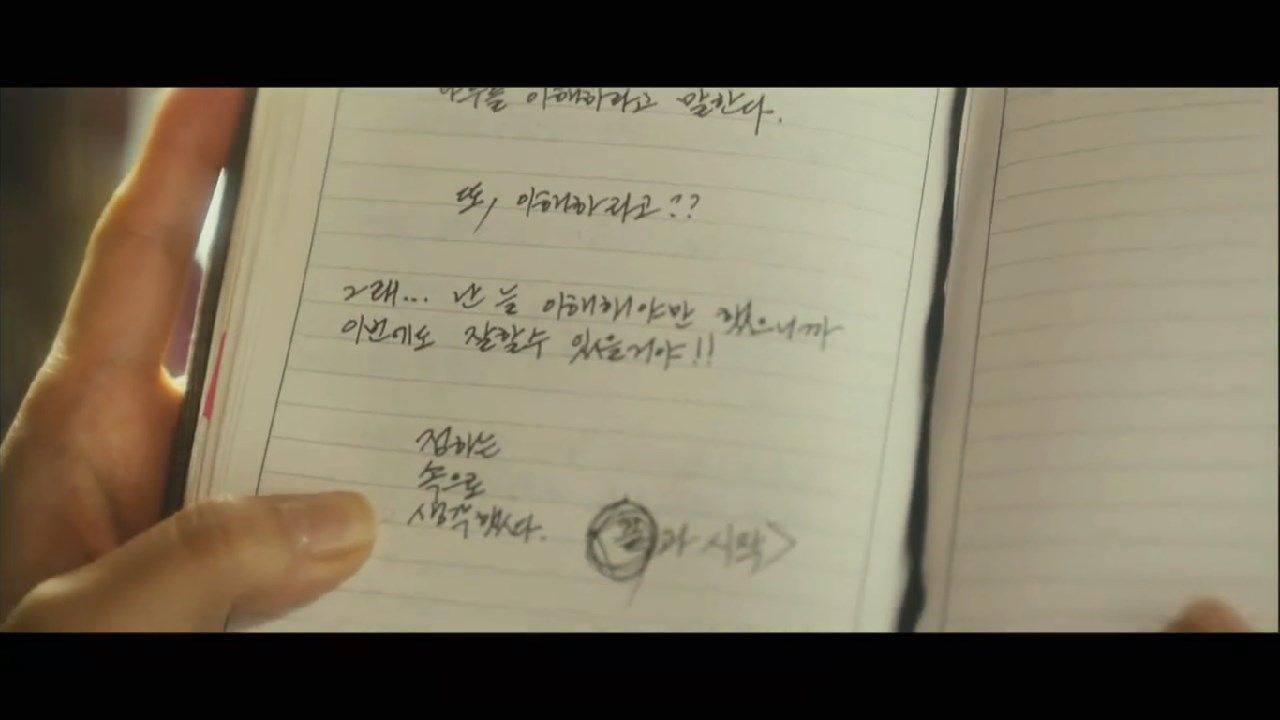 이해하라고 말한다.
또, 이해하라고??
그래... 난 늘 이해해야만 했으니까
이번에도 잘할수 있을거야!!
점하는
속으로
생각했다.
<끝과 시작>